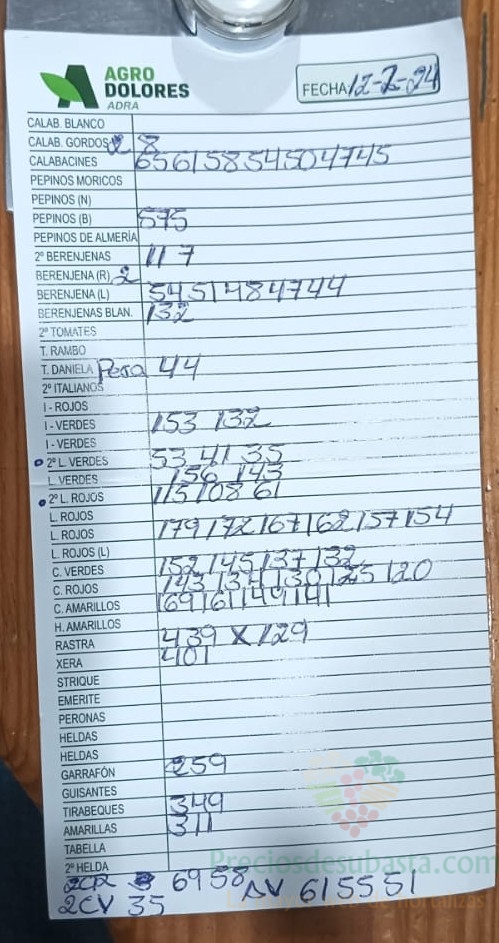 AGRO
DOLORES
ADRA
FECHA 12-2-24
CALAB. BLANCO
CALAB. GORDOS 2 8
CALABACINES 65 61 58 54 50 47 45
PEPINOS MORICOS
PEPINOS (N)
PEPINOS (B) 575
PEPINOS DE ALMERÍA
2º BERENJENAS 11 7
BERENJENA (R) 2
BERENJENA (L) 54 51 48 47 44
BERENJENAS BLAN. 132
2º TOMATES
T. RAMBO
T. DANIELA Pera 44
2º ITALIANOS
I - ROJOS
I - VERDES 153 132
I - VERDES
2º L. VERDES 53 41 35
L. VERDES 156 143
2º L. ROJOS 115 108 61
L. ROJOS
L. ROJOS 179 172 167 162 157 154
L. ROJOS (L)
C. VERDES 152 145 137 132
C. ROJOS 143 134 130 125 120
C. AMARILLOS 169 161 149 141
H. AMARILLOS
RASTRA 439 X 129
XERA 401
STRIQUE
EMERITE
PERONAS
HELDAS
HELDAS
GARRAFÓN 259
GUISANTES
TIRABEQUES 349
AMARILLAS 311
TABELLA
2º HELDA
Preciosdesubasta.com
2CR 69 58 AV 61 55 51
2CV 35
de hortalizas